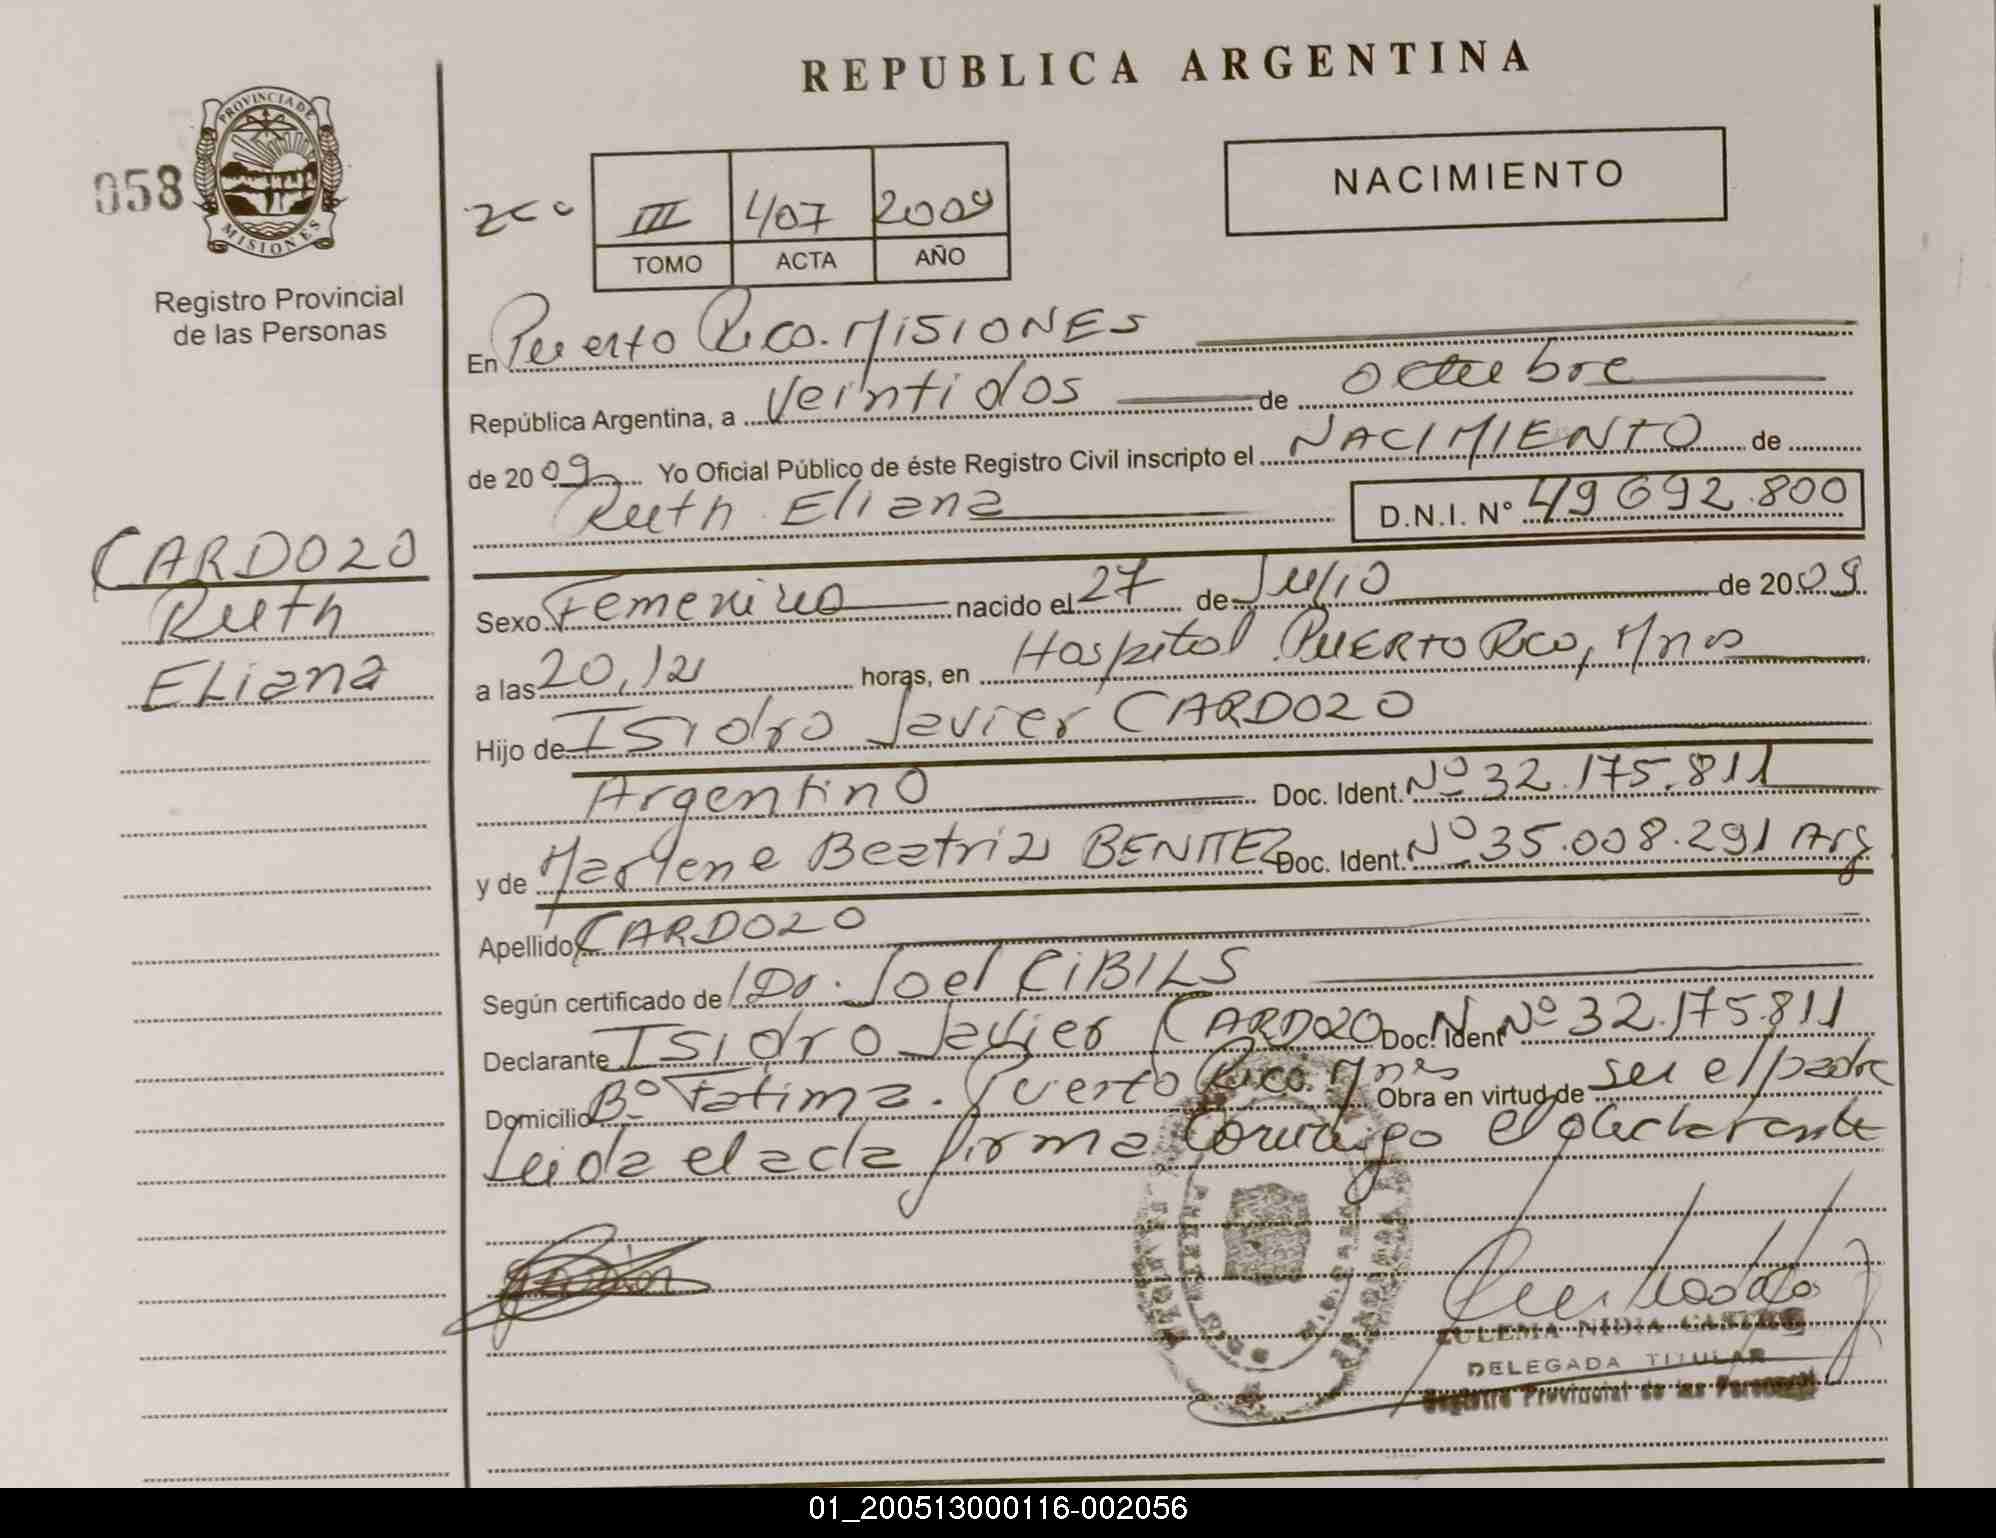 REPUBLICA ARGENTINA
PROVINCIA DE
MISIONES
058
Registro Provincial
de las Personas
NACIMIENTO
III 407 2009
TOMO ACTA AÑO
En Puerto Rico. MISIONES
República Argentina, a Veintidos de octubre
de 2009 Yo Oficial Público de éste Registro Civil inscripto el NACIMIENTO de
Ruth Eliana D.N.I. N° 49692.800
CARDOZO
Ruth
Eliana
Sexo Femenino nacido el 27 de Julio de 2009
a las 20,12 horas, en Hospital PUERTO Rico, Mnes
Hijo de Isidro Javier CARDOZO
Argentino Doc. Ident. Nº 32.175.811
y de Marlene Beatriz BENITEZ Doc. Ident. Nº 35.008.291 Arg
Apellido CARDOZO
Según certificado de Dr. Joel CIBILS
Declarante Isidro Javier CARDOZO Doc. N. Ident Nº 32.175.811
Domicilio Bº Fatima. Puerto Rico. Mnes Obra en virtud de ser el padre
Leida el acta firma conmigo el declarante
ZULEMA NIDIA
DELEGADA TITULAR
Registro Provincial de las Personas
01_200513000116-002056